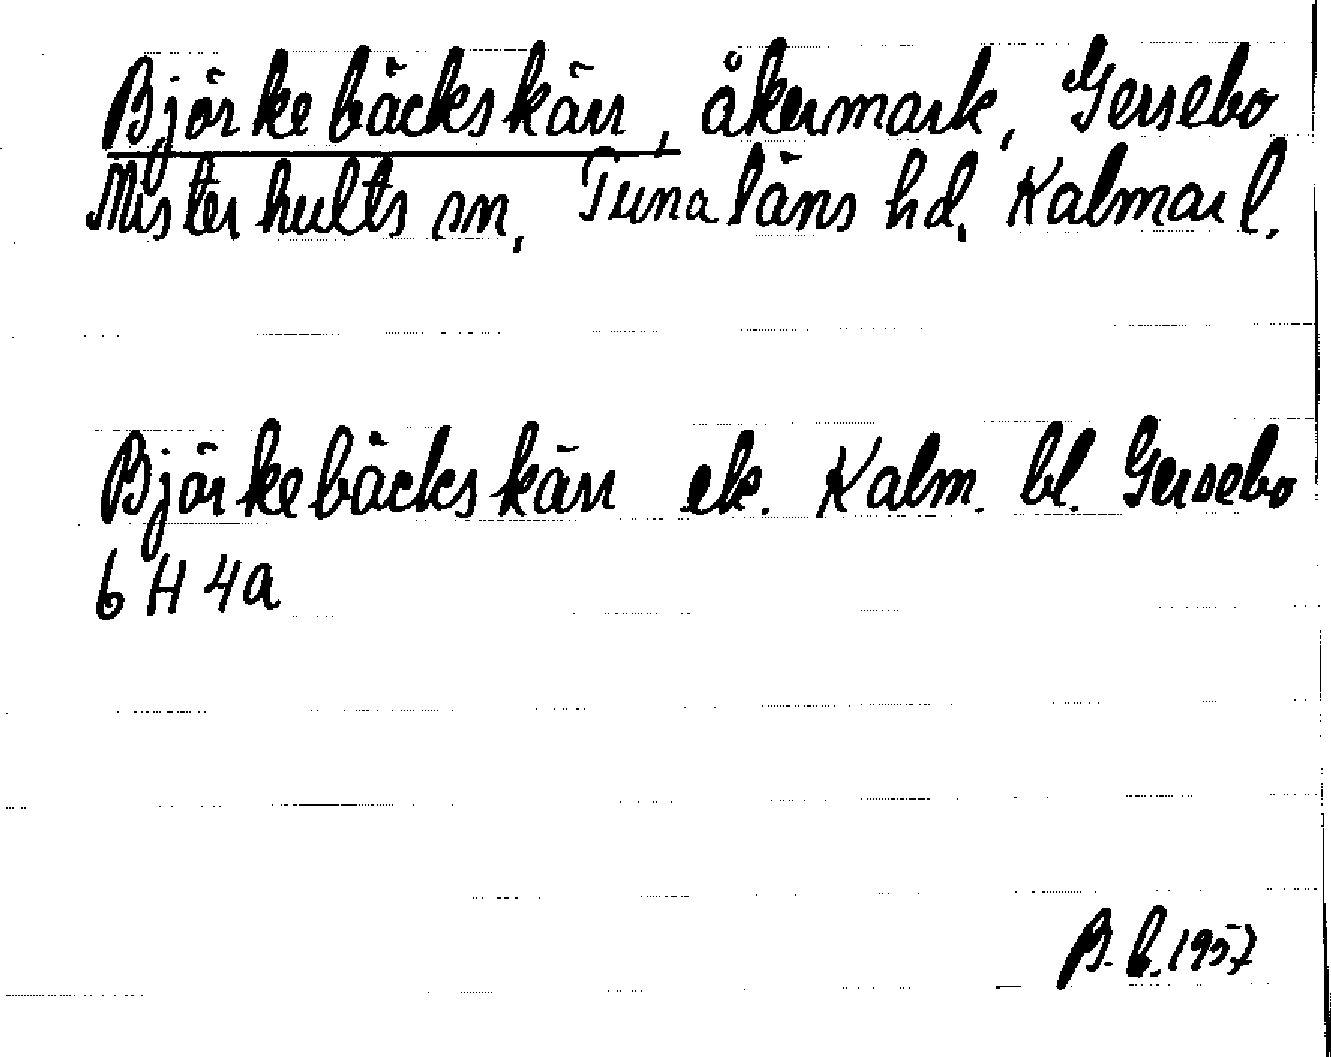 Björkebäckskärr, åkermark, Gersebo
Misterhults sn, Tunaläns hd, Kalmar l.
Björkebäckskärr ek. Kalm. bl. Gersebo
6 H 4a
B. b. 1957